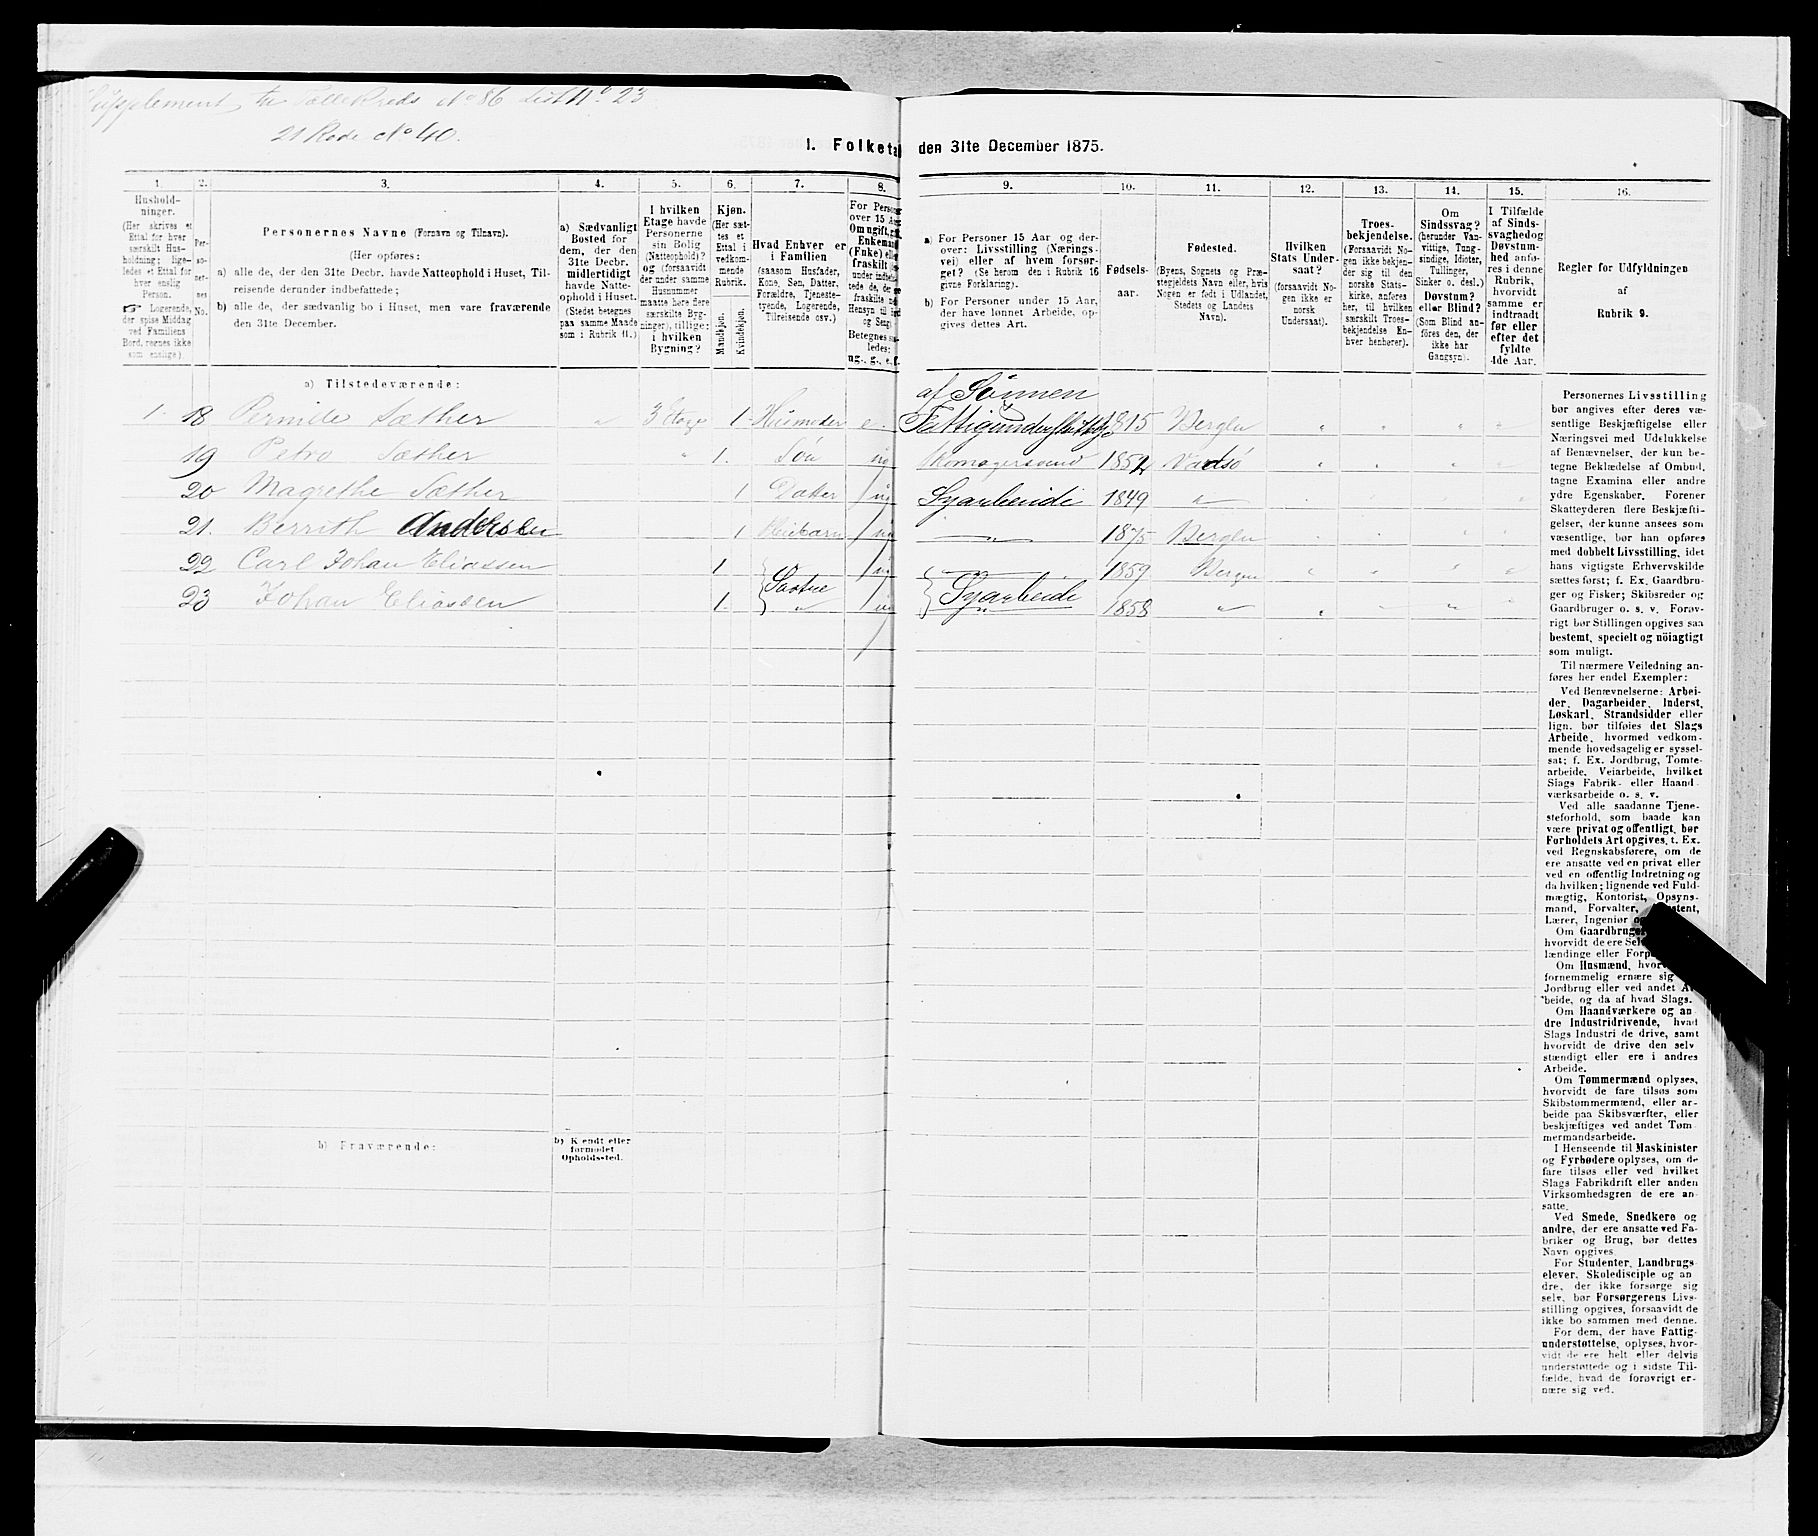 Supplement til Tællekreds No 86 List No. 23
21 Rode No 40.
1. Folketal den 31te December 1875.
1. 2. 3. 4. 5. 6. 7. 8. 9. 10. 11. 12. 13. 14. 15. 16.
Hushold-
ninger.
(Her skrives et
Ettal for hver
særskilt Hus-
holdning; lige-
ledes et Ettal for
hver enslig
Person.
☞ Logerende,
der spise Middag
ved Familiens
Bord, regnes ikke
som enslige.)
Per-
so-
ner-
nes
No.
Personernes Navne (Fornavn og Tilnavn).
(Her opføres:
a) alle de, der den 31te Decbr. havde Natteophold i Huset, Til-
reisende derunder indbefattede;
b) alle de, der sædvanlig bo i Huset, men vare fraværende
den 31te December.
a) Sædvanligt
Bosted for
dem, der den
31te Decbr.
midlertidigt
havde Natte-
ophold i Huset.
(Stedet betegnes
paa samme Maade
som i Rubrik 11.)
I hvilken
Etage havde
Personerne
sin Bolig
(Natteophold)?
og (forsaavidt
der under samme
Husnummer
maatte høre flere
særskilte Byg-
ninger), tillige:
i hvilken
Bygning?
Kjøn.
(Her sæt-
tes et
Ettal i
vedkom-
mende
Rubrik.
Mandkjøn.
Kvindekjøn.
Hvad Enhver er
i Familien
(saasom Husfader,
Kone, Søn, Datter,
Forældre, Tjeneste-
tyende, Logerende,
Tilreisende osv.)
For Person
over 15 Aa
Om ugift, gift
Enkemand
(Enke) elle
fraskilt
ledes:
ug., g., e., f.
a) For Personer 15 Aar og der-
over: Livsstilling (Nærings-
vei) eller af hvem forsør-
get? (Se herom den i Rubrik 16
givne Forklaring).
b) For Personer under 15 Aar,
der have lønnet Arbeide, op-
gives dettes Art.
Fødsels-
aar.
Fødested.
(Byens, Sognets og Præ-
stegjeldets Navn eller, hvis
Nogen er født i Udlandet,
Stedets og Landets
Navn).
Hvilken
Stats Under-
saat?
(forsaavidt No-
gen ikke er
norsk
Undersaat).
Troes-
bekjendelse.
(Forsaavidt No-
gen ikke bekjen-
der sig til den
norske Stats-
kirke, anføres
her, til hvilken
særskilt Troes-
bekjendelse En-
hver henhører).
Om
Sindssvag?
(herunder Van-
vittige, Tung-
sindige, Idioter,
Tullinger,
Sinker o. desl.)
Døvstum?
eller Blind?
(Som Blind an-
føres den, der
ikke har
Gangsyn).
I Tilfælde
af Sinds-
svaghed og
Døvstum-
hed anfø-
res i denne
Rubrik,
hvorvidt
samme er
indtraadt
før eller
efter det
fyldte
4de Aar.
Regler for Udfyldningen
af
Rubrik 9.
a) Tilstedeværende:
af Sønnen
1. 18 Pernille Sæther " 3 Etage 1 Husmoder e. Fattigunderstøttelse 1815 Bergen " " " "
19 Petro Sæther " 1. Søn ug Komagersvend 1852 Vadsø " " " "
20 Magrethe Sæther 1 Datter ug Syarbeide 1849 " "
21. Berrith Andersen 1 Pleiebarn ug " 1875 Bergen
22 Carl Johan Eliassen 1 Søstre ug 1859 Bergen " " " "
23 Johan Eliassen 1. " ug Syarbeide 1858 " " " " "
Personernes Livsstilling
bør angives efter deres væ-
sentlige Beskjæftigelse eller
Næringsvei med Udelukkelse
af Benævnelser, der kun be-
tegne Beklædelse af Ombud,
tagne Examina eller andre
ydre Egenskaber. Forener
Skatteyderen flere Beskjæfti-
gelser, der kunne ansees som
væsentlige, bør han opføres
med dobbelt Livsstilling, idet
hans vigtigste Erhvervskilde
sættes først; f. Ex. Gaardbru-
ger og Fisker; Skibsreder og
Gaardbruger o. s. v. Forøv-
rigt bør Stillingen opgives saa
bestemt, specielt og nöiagtigt
som muligt.
Til nærmere Veiledning an-
føres her endel Exempler:
Ved Benævnelserne: Arbei-
der, Dagarbeider, Inderst,
Løskarl, Strandsidder eller
lign. bør tilføies det Slags
Arbeide, hvormed vedkom-
mende hovedsagelig er syssel-
sat; f. Ex. Jordbrug, Tomte-
arbeide, Veiarbeide, hvilket
Slags Fabrik- eller Haand
værksarbeide o. s. v.
Ved alle saadanne Tjene-
steforhold, som baade kan
være privat og offentligt, bør
Forholdets Art opgives, t. Ex.
ved Regnskabsførere, om de
ere ansatte ved en privat eller
ved en offentlig Indretning og
da hvilken; lignende ved Fuld-
mægtig, Kontorist, Opsyns-
mand, Forvalter, Assistent,
Lærer, Ingeniør og
Om Gaardbruge
hvorvidt de ere Sel
lændinge eller Forp
Om Husmænd, hvor
fornemmelig ernære sig
Jordbrug eller ved andet Ar-
beide, og da af hvad Slags.
Om Haandværkere og an
dre Industridrivende, hvad
Slags Industri de drive, samt
hvorvidt de drive den selv
stændigt eller ere i andres
Arbeide.
Om Tømmermænd oplyses,
hvorvidt de fare tilsøs som
Skibstømmermænd, eller ar-
beide paa Skibsværfter, eller
beskjæftiges ved andet Tøm
mermandsarbeide.
I Henseende til Maskinister
og Fyrbødere oplyses, om de
fare tilsøs eller ved hvilket
Slags Fabrikdrift eller anden
Virksomhedsgren de ere an-
satte.
Ved Smede, Snedkere og
andre, der ere ansatte ved Fa-
briker og Brug, bør dettes
Navn opgives
For Studenter, Landbrugs
elever, Skoledisciple og an
dre, der ikke forsørge sig
selv, bør Forsørgerens Livs-
stilling opgives, forsaavidt de
ikke bo sammen med denne.
For dem, der have Fattig-
understøttelse, oplyses, hvor-
vidt de ere helt eller delvis
understøttede og i sidste Til-
fælde, hvad de forøvrigt er-
nære sig ved.
b) Fraværende:
b) Kjendt eller
formodet
Opholdssted.